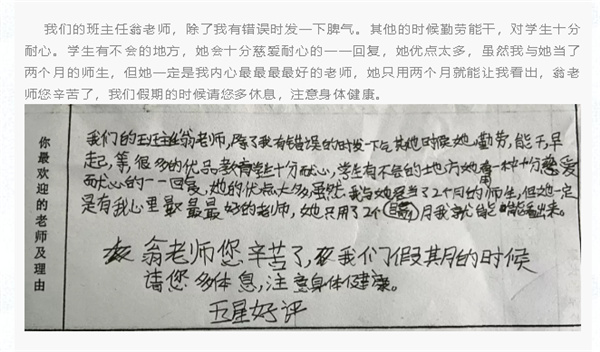 我们的班主任翁老师，除了我有错误时发一下脾气。其他的时候勤劳能干，对学生十分
耐心。学生有不会的地方，她会十分慈爱耐心的一一回复，她优点太多，虽然我与她当了
两个月的师生，但她一定是我内心最最最最好的老师，她只用两个月就能让我看出，翁老
师您辛苦了，我们假期的时候请您多休息，注意身体健康。
你最欢迎的老师及理由
我们的班主任翁老师，除了我有错误的时发一下气其她时候她勤劳，能干，早
起，等很多的优品，教育学生十分耐心，学生有不会的地方她用一种十分慈爱
耐心的一一回复，她的优点太多虽然，我与她当了2个月的师生，但她一定
是有我心里最最最好的老师，她只用了2个月我就能看出来。
翁老师您辛苦了，我们假其月的时候
请您多体息，注意身体健康。
五星好评